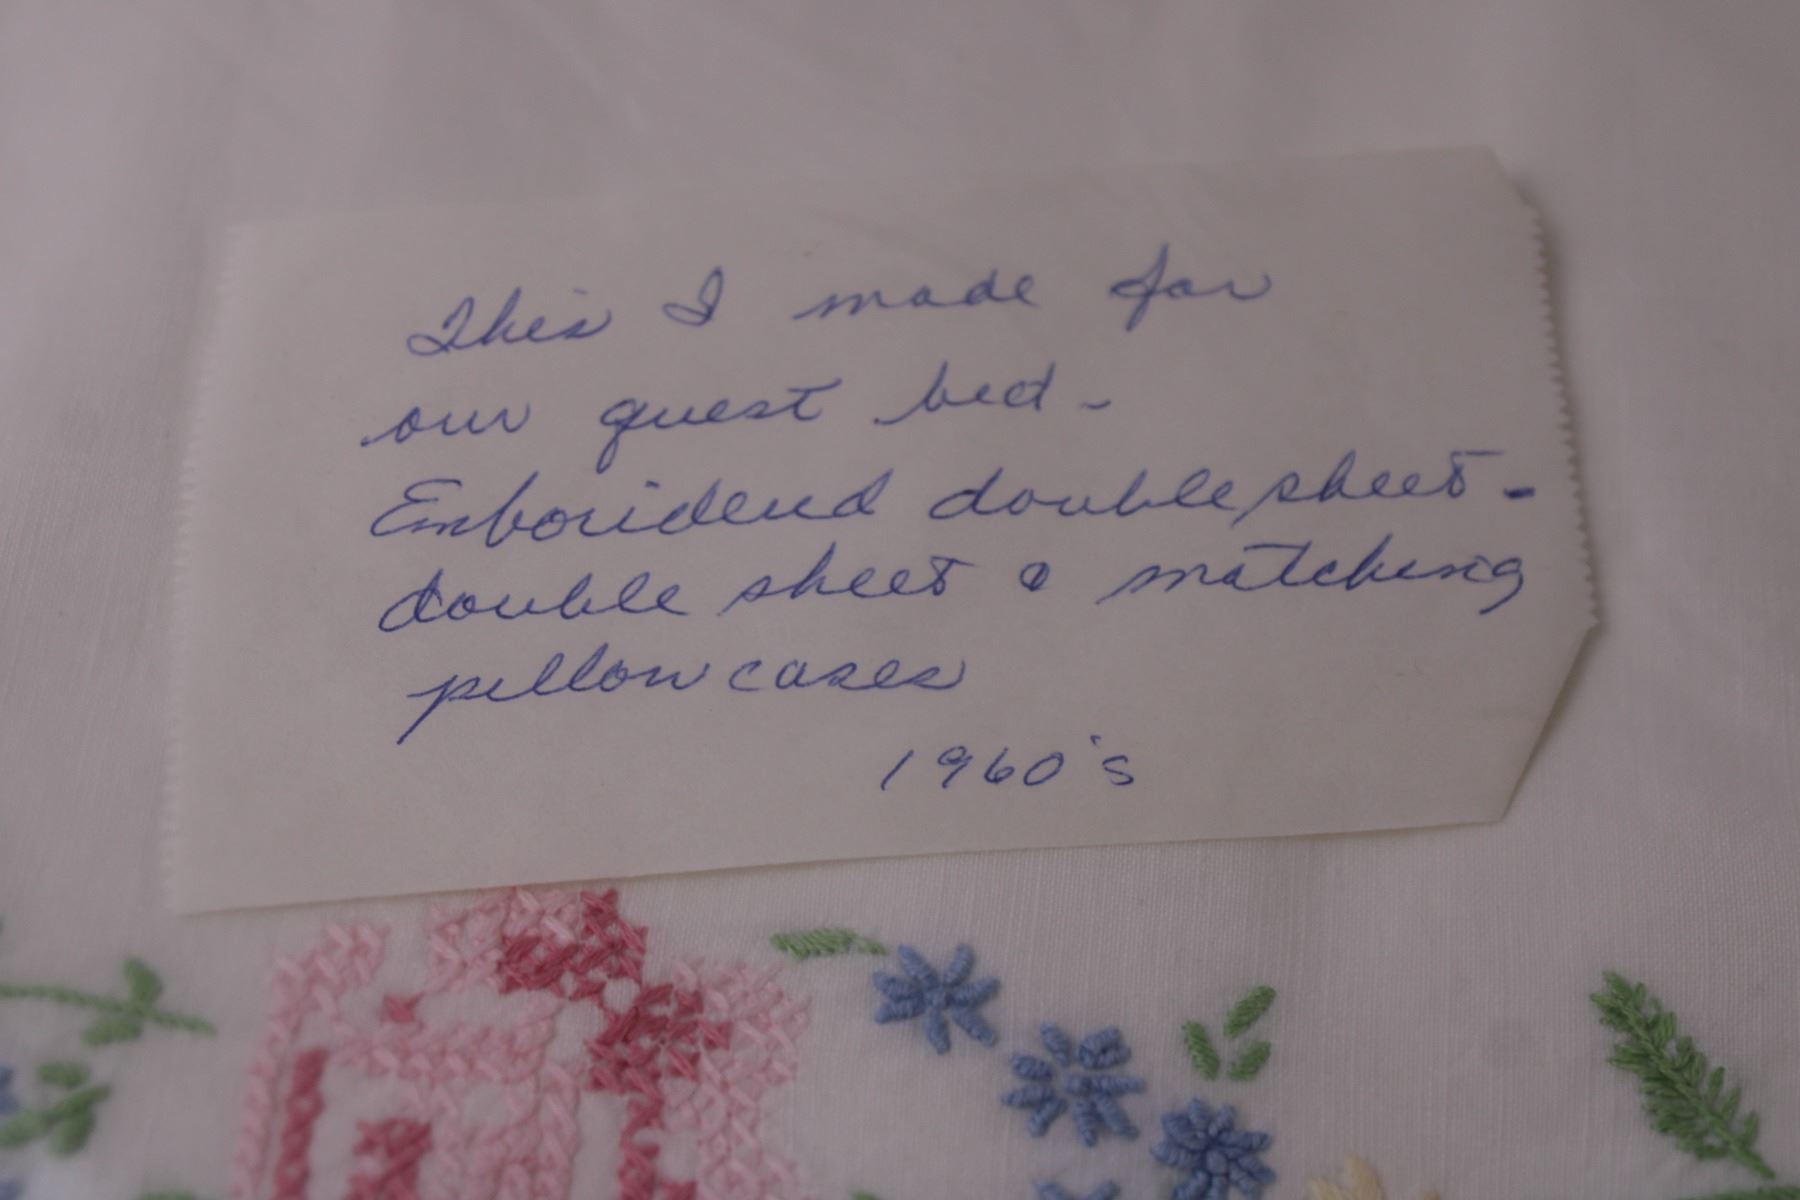 This I made for
our guest bed -
Emboridered double sheet -
double sheet & matching
pillow cases
1960's